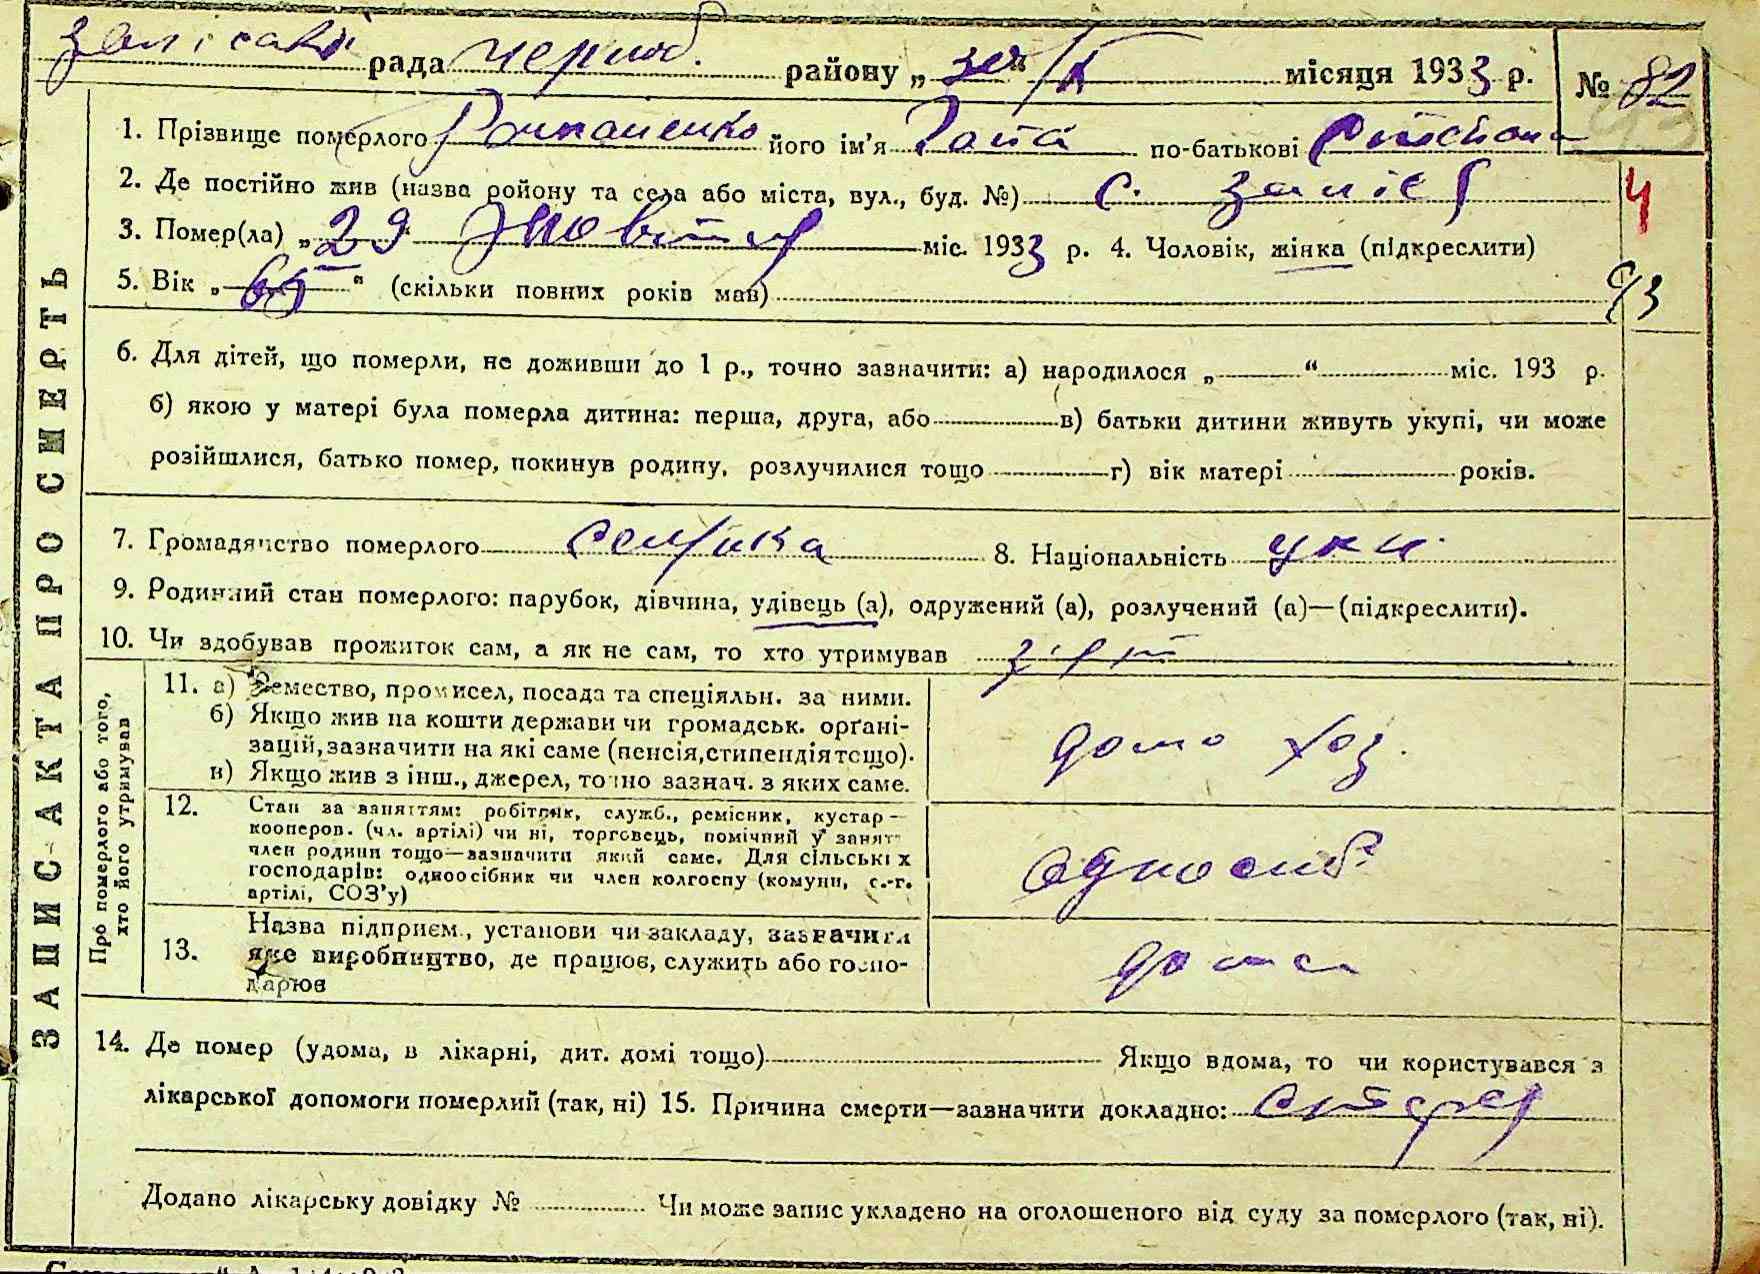 залісská рада чорноб. району „30“ X місяця 1933 р. № 82
1. Прізвище померлого Романенко його ім'я Гапа по-батькові
2. Де постійно жив (назва ройону та села або міста, вул., буд. №) с. Заліся
3. Помер(ла) „29 Жовтня міс. 1933 р. 4. Чоловік, жінка (підкреслити)
4
5. Вік „65“ (скільки повних років мав)
93
6. Для дітей, що померли, не доживши до 1 р., точно зазначити: а) народилося „ “ міс. 193 р.
б) якою у матері була померла дитина: перша, друга, або в) батьки дитини живуть укупі, чи може
розійшлися, батько помер, покинув родину, розлучилися тощо г) вік матері років.
7. Громадянство померлого селянка 8. Національність укр.
9. Родинний стан померлого: парубок, дівчина, удівець (а), одружений (а), розлучений (а)—(підкреслити).
10. Чи здобував прожиток сам, а як не сам, то хто утримував зять
ЗАПИС АКТА ПРО СМЕРТЬ
Про померлого або того,
хто його утримував
11. а) Ремество, промисел, посада та спеціяльн. за ними.
б) Якщо жив на кошти держави чи громадськ. орґані-
зацій, зазначити на які саме (пенсія, стипендія тощо).
в) Якщо жив з інш., джерел, точно зазнач. з яких саме.
домо хоз.
12. Стан за заняттям: робітник, служб., ремісник, кустар—
кооперов. (чл. артілі) чи ні, торговець, помічний у занят
член родини тощо—зазначити який саме. Для сільських
господарів: одноосібник чи член колгоспу (комуни, с.-г.
артілі, СОЗ'у)
односиб.
13. Назва підприєм., установи чи закладу, зазначити
яке виробництво, де працює, служить або госпо-
дарює
дома
14. Де помер (удома, в лікарні, дит. домі тощо) Якщо вдома, то чи користувався з
лікарської допомоги померлий (так, ні) 15. Причина смерти—зазначити докладно:
Додано лікарську довідку № Чи може запис укладено на оголошеного від суду за померлого (так, ні).